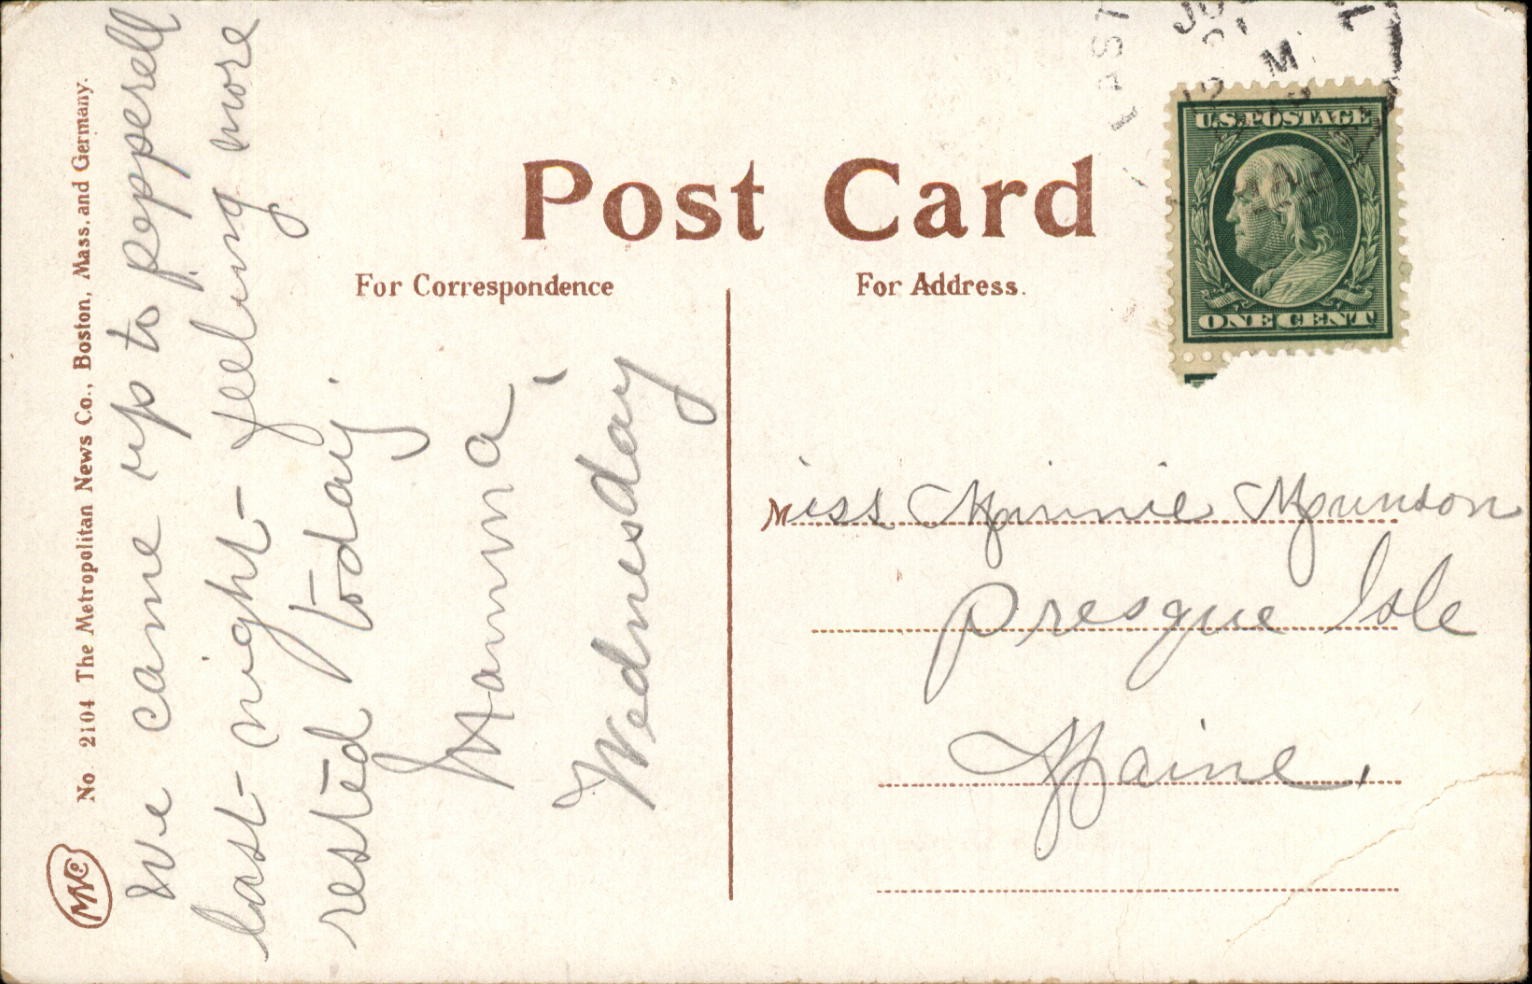 No. 2104 The Metropolitan News Co., Boston, Mass. and Germany.
MNCo
We came up to pepperell
last night - feeling more
rested today.
Mamma
Wednesday
Post Card
For Correspondence
For Address.
U.S. POSTAGE
ONE CENT
Miss Minnie Munson
Presque Isle
Maine.